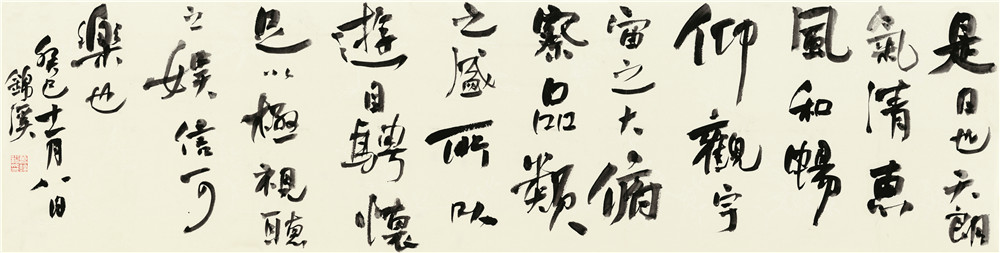 是日也天朗
氣清惠
風和暢
仰觀宇
宙之大俯
察品類
之盛所以
遊目騁懷
足以極視聽
之娛信可
樂也
癸巳十一月八日
錦溪